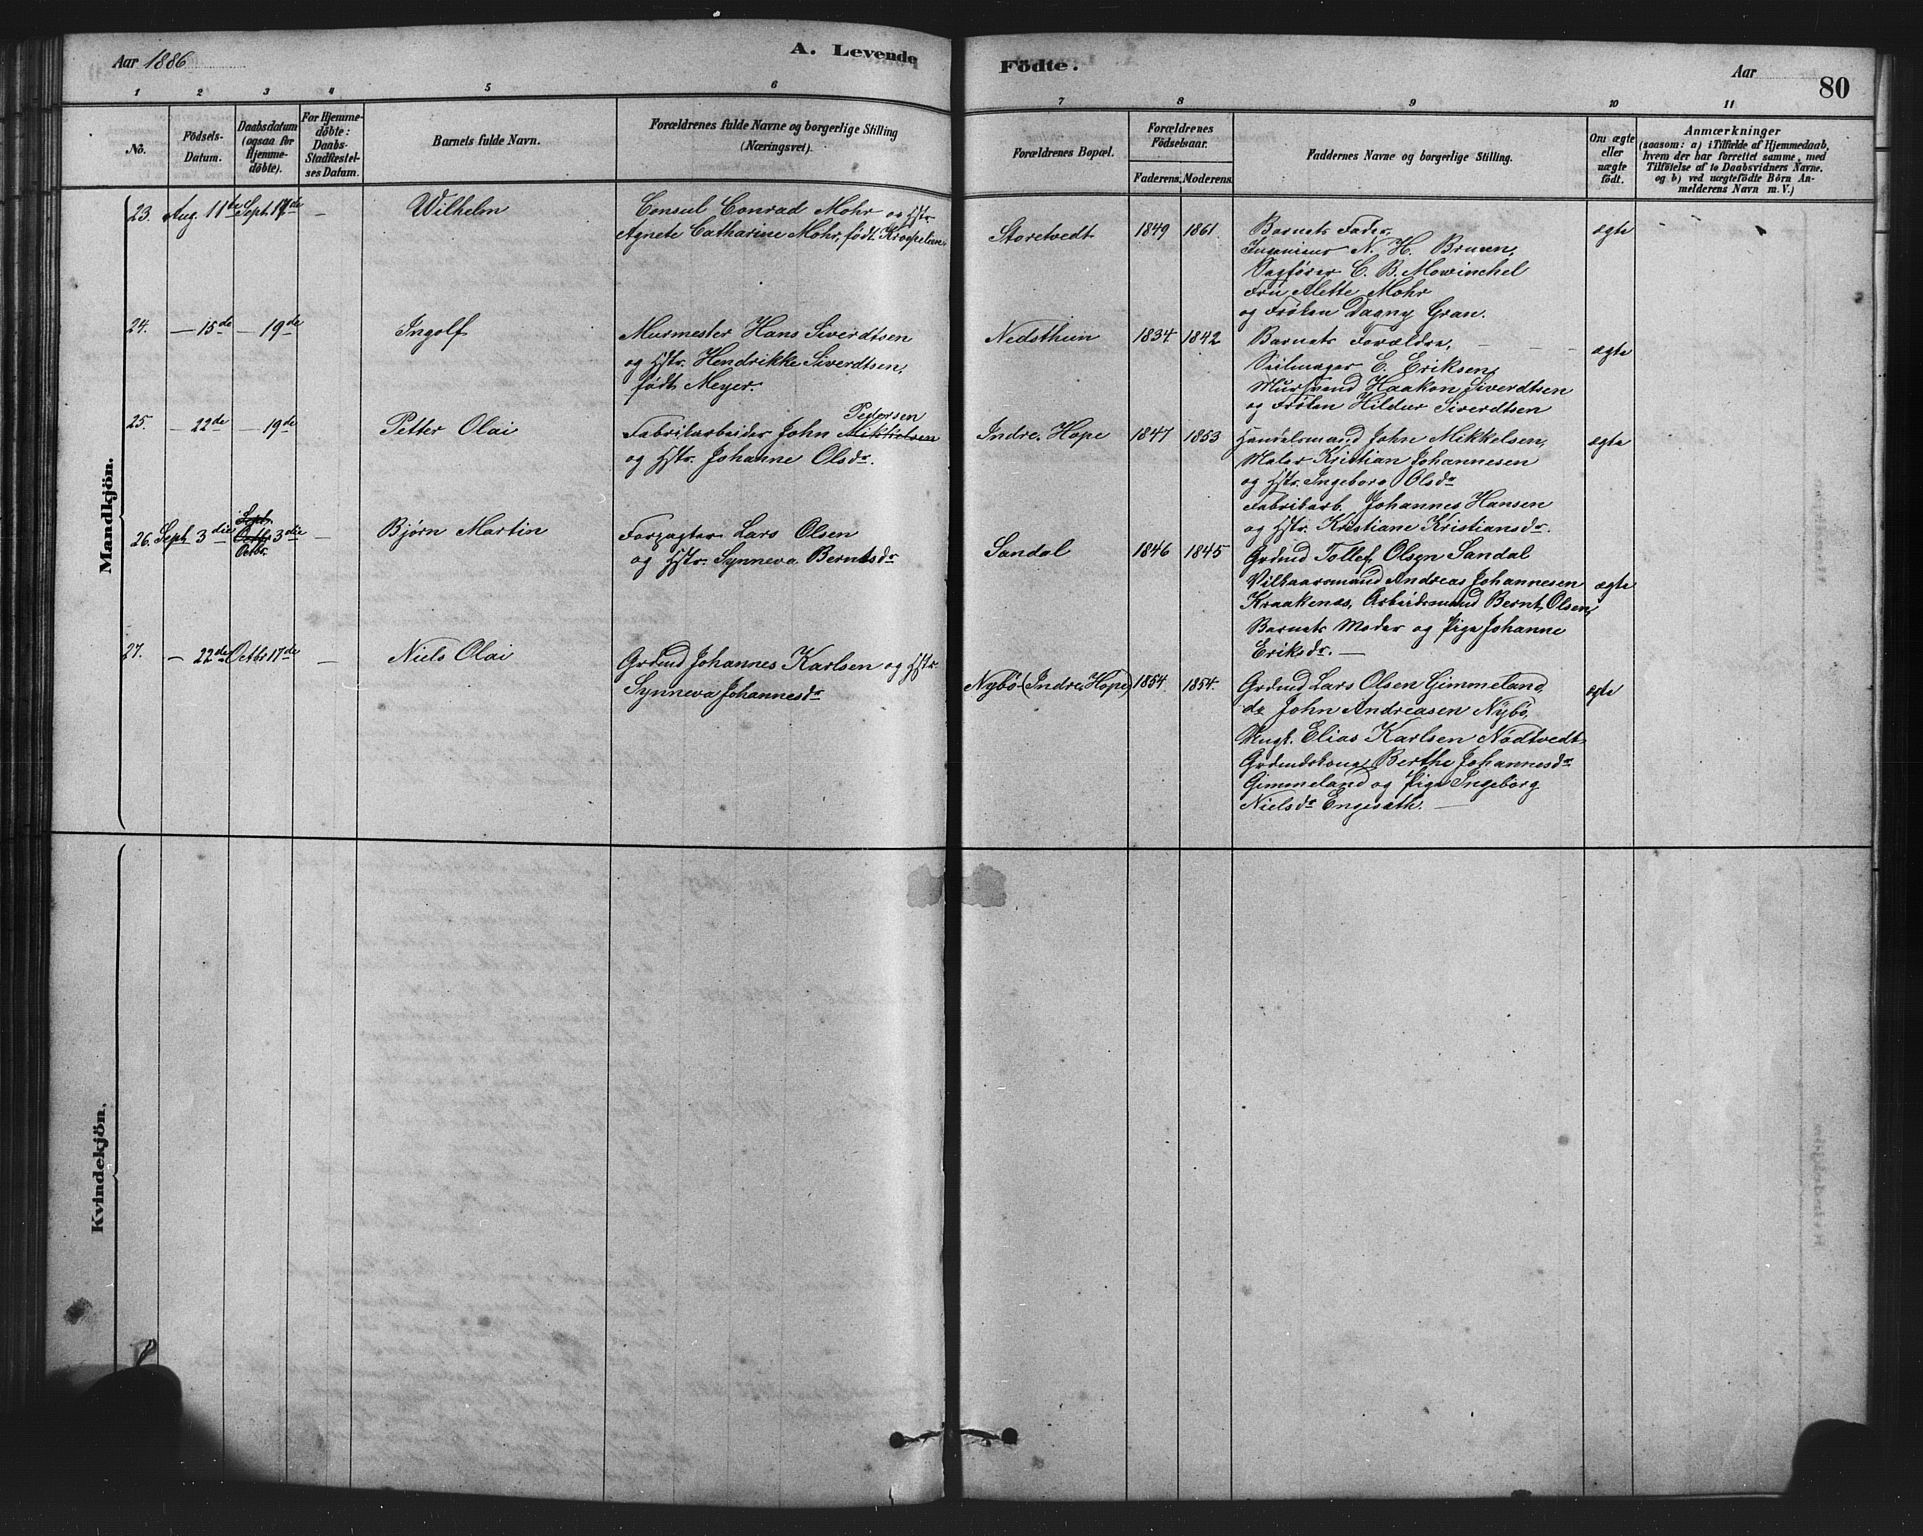 Aar 1886
A. Levende
Födte.
Aar
80
1 2 3 4 5 6 7 8 9 10 11
No.
Födsels-
Datum.
Daabsdatum
(ogsaa for
Hjemme-
döbte).
For Hjemme-
döbte:
Daabs-
Stadfæstel-
ses Datum.
Barnets fulde Navn.
Forældrenes fulde Navne og borgerlige Stilling
(Næringsvei).
Forældrenes Bopæl.
Forældrenes
Födselsaar.
Faderens. Moderens.
Faddernes Navne og borgerlige Stilling.
Om ægte
eller
uægte
født.
Anmærkninger
(saasom: a) i Tilfælde af Hjemmedaab,
hvem der har forrettet samme, med
Tilföielse af to Daabsvidners Navne.
og b) ved uægtefødte Börn An-
melderens Navn m. V.)
Mandkjön.
23. Aug. 11te Sept. 19de — Wilhelm
Consul Conrad Mohr og Hstr.
Agnete Catharine Mohr, födt Kroepelien.
Storetvedt 1849 1861
Barnets Fader,
Ingeniør N. H. Bruun,
Sagfører C. B. Mowinchel
Fru Alette Mohr
og Frøken Dagny Gran.
ægte
24. — 15de — 19de Ingolf
Murmester Hans Siverdtsen
og Hstr. Hendrikke Siverdtsen,
født Meyer.
Nedsttun 1834 1842
Barnets Forældre,
Seilmager E. Eriksen,
Mursvend Haakon Siverdtsen
og Frøken Hildur Siverdtsen
ægte
25. — 22de — 19de Petter Olai
Pedersen
Fabrikarbeider John Mikkelsen
og Hstr. Johanne Olsdr.
Indre Hope 1847 1853
Handelsmand John Mikkelsen,
Maler Kristian Johannesen
og Hstr. Ingeborg Olsdr
Fabrikarb. Johannes Hansen
og Hstr. Kristiane Kristiansdr.
ægte
26. Sept. 3die Octbr. 3die — Bjørn Martin
Forpagter Lars Olsen
og Hstr. Synneva Berntsdr
Sandal 1846 1845
Grdmd Tollef Olsen Sandal
Vilkaarsmand Andreas Johannesen
Kraakenæs, Arbeidsmand Bernt Olsen,
Barnets Moder og Pige Johanne
Eriksdr. —
ægte
27. — 22de Octbr 17de — Niels Olai
Grdmd Johannes Karlsen og Hstr.
Synneva Johannesdr
Nybø (Indre Hope) 1854. 1854.
Grdmd Lars Olsen Gimmeland,
do John Andreasen Nybø,
Ungk. Elias Karlsen Nødtvedt
Grdmdskone Berthe Johannesdr
Gimmeland og Pige Ingeborg
Nielsdr Engesæth. —
ægte
Kvindekjön.